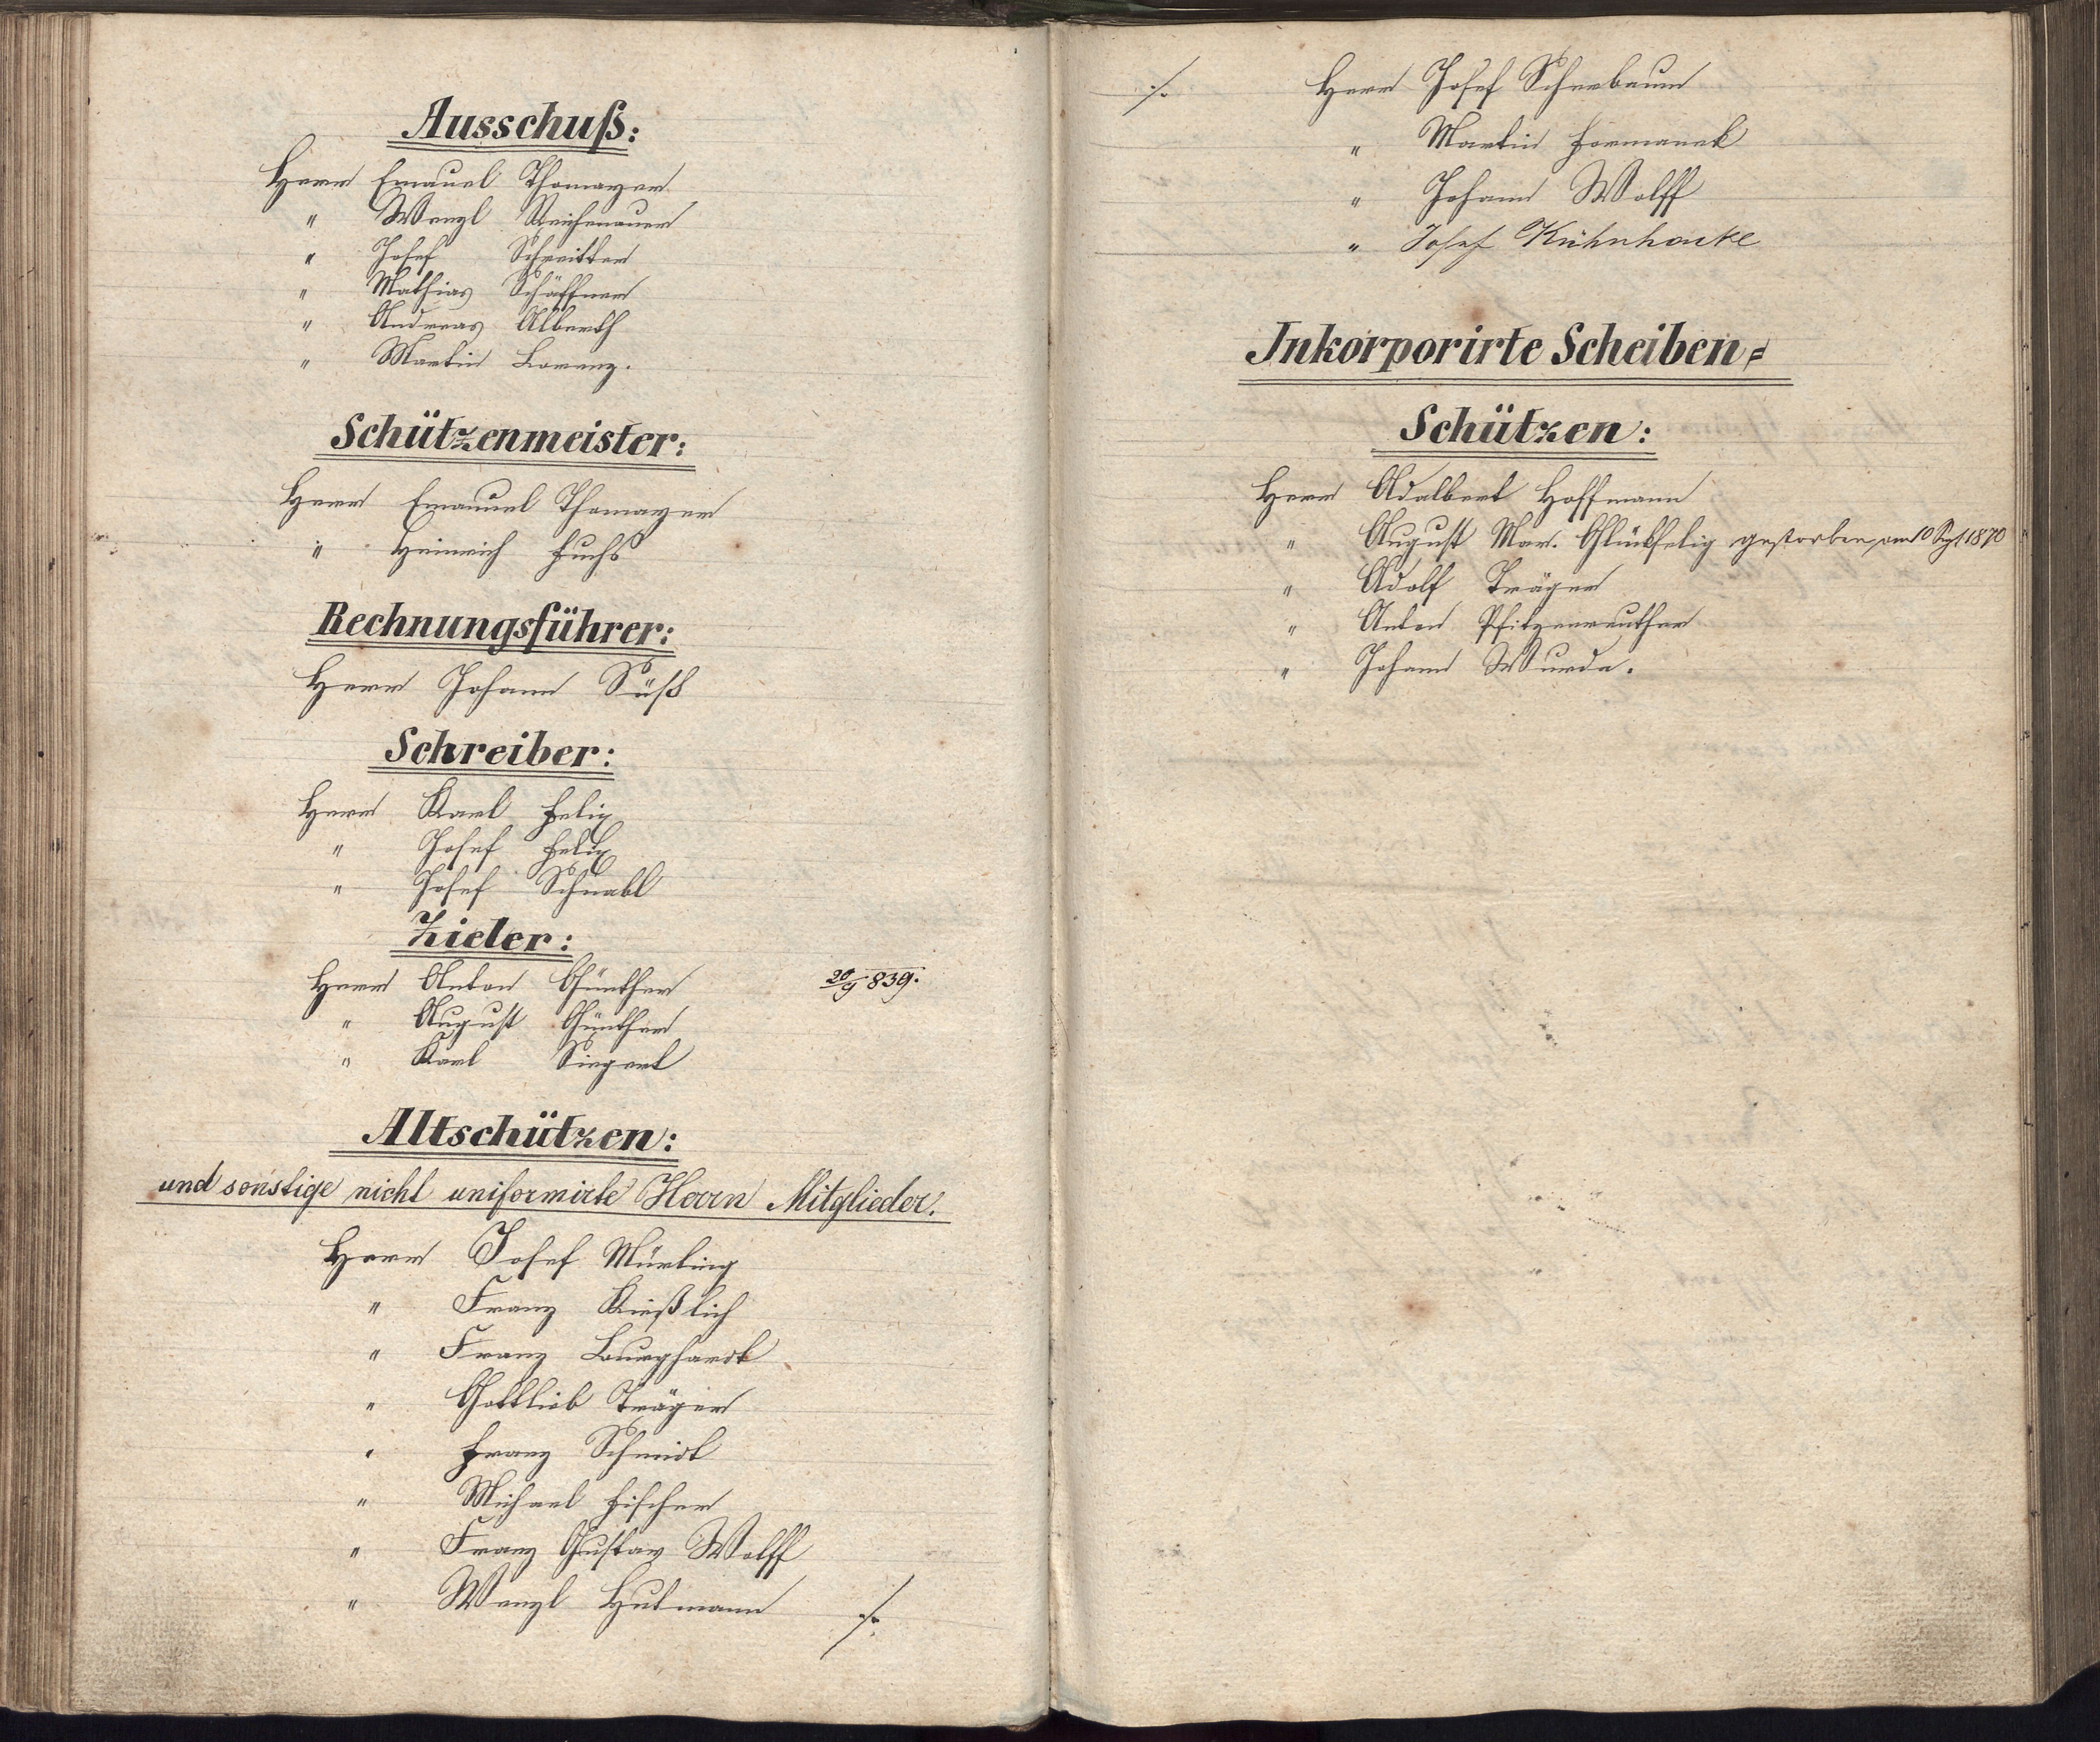 Ausschuß:
Herr Emanuel Thomayer
" Wenzl Reichenauer
" Josef Schreitter
" Mathias Schäffner
" Andreas Alberth
" Martin Lorenz.
Schützenmeister:
Herr Emanuel Thomayer
" Heinrich Fuchs
Rechnungsführer:
Herr Johann Süß
Schreiber:
Herr Karl Felix
" Josef Felix
" Josef Schnabl
Zieler:
Herr Anton Günther 20/9 839.
" August Günther
" Karl Siegert
Altschützen:
und sonstige nicht uniformirte Herrn Mitglieder.
Herr Josef Mürling
" Franz Kießlich
" Franz Burghardt
" Gottlieb Träger
" Franz Schmidt
" Michael Fischer
" Franz Gustav Wolff
" Wenzl Hutmann ./.
./. Herr Josef Scheebaum
" Martin Formanek
" Johann Wolff
" Josef Kühnhackl
Inkorporirte Scheiben=
Schützen:
Herr Adalbert Hoffmann
" August Mar. Glückselig gestorben am 10 Spt 1870
" Adolf Träger
" Anton Pfitzenreuther
" Johann Wurda.